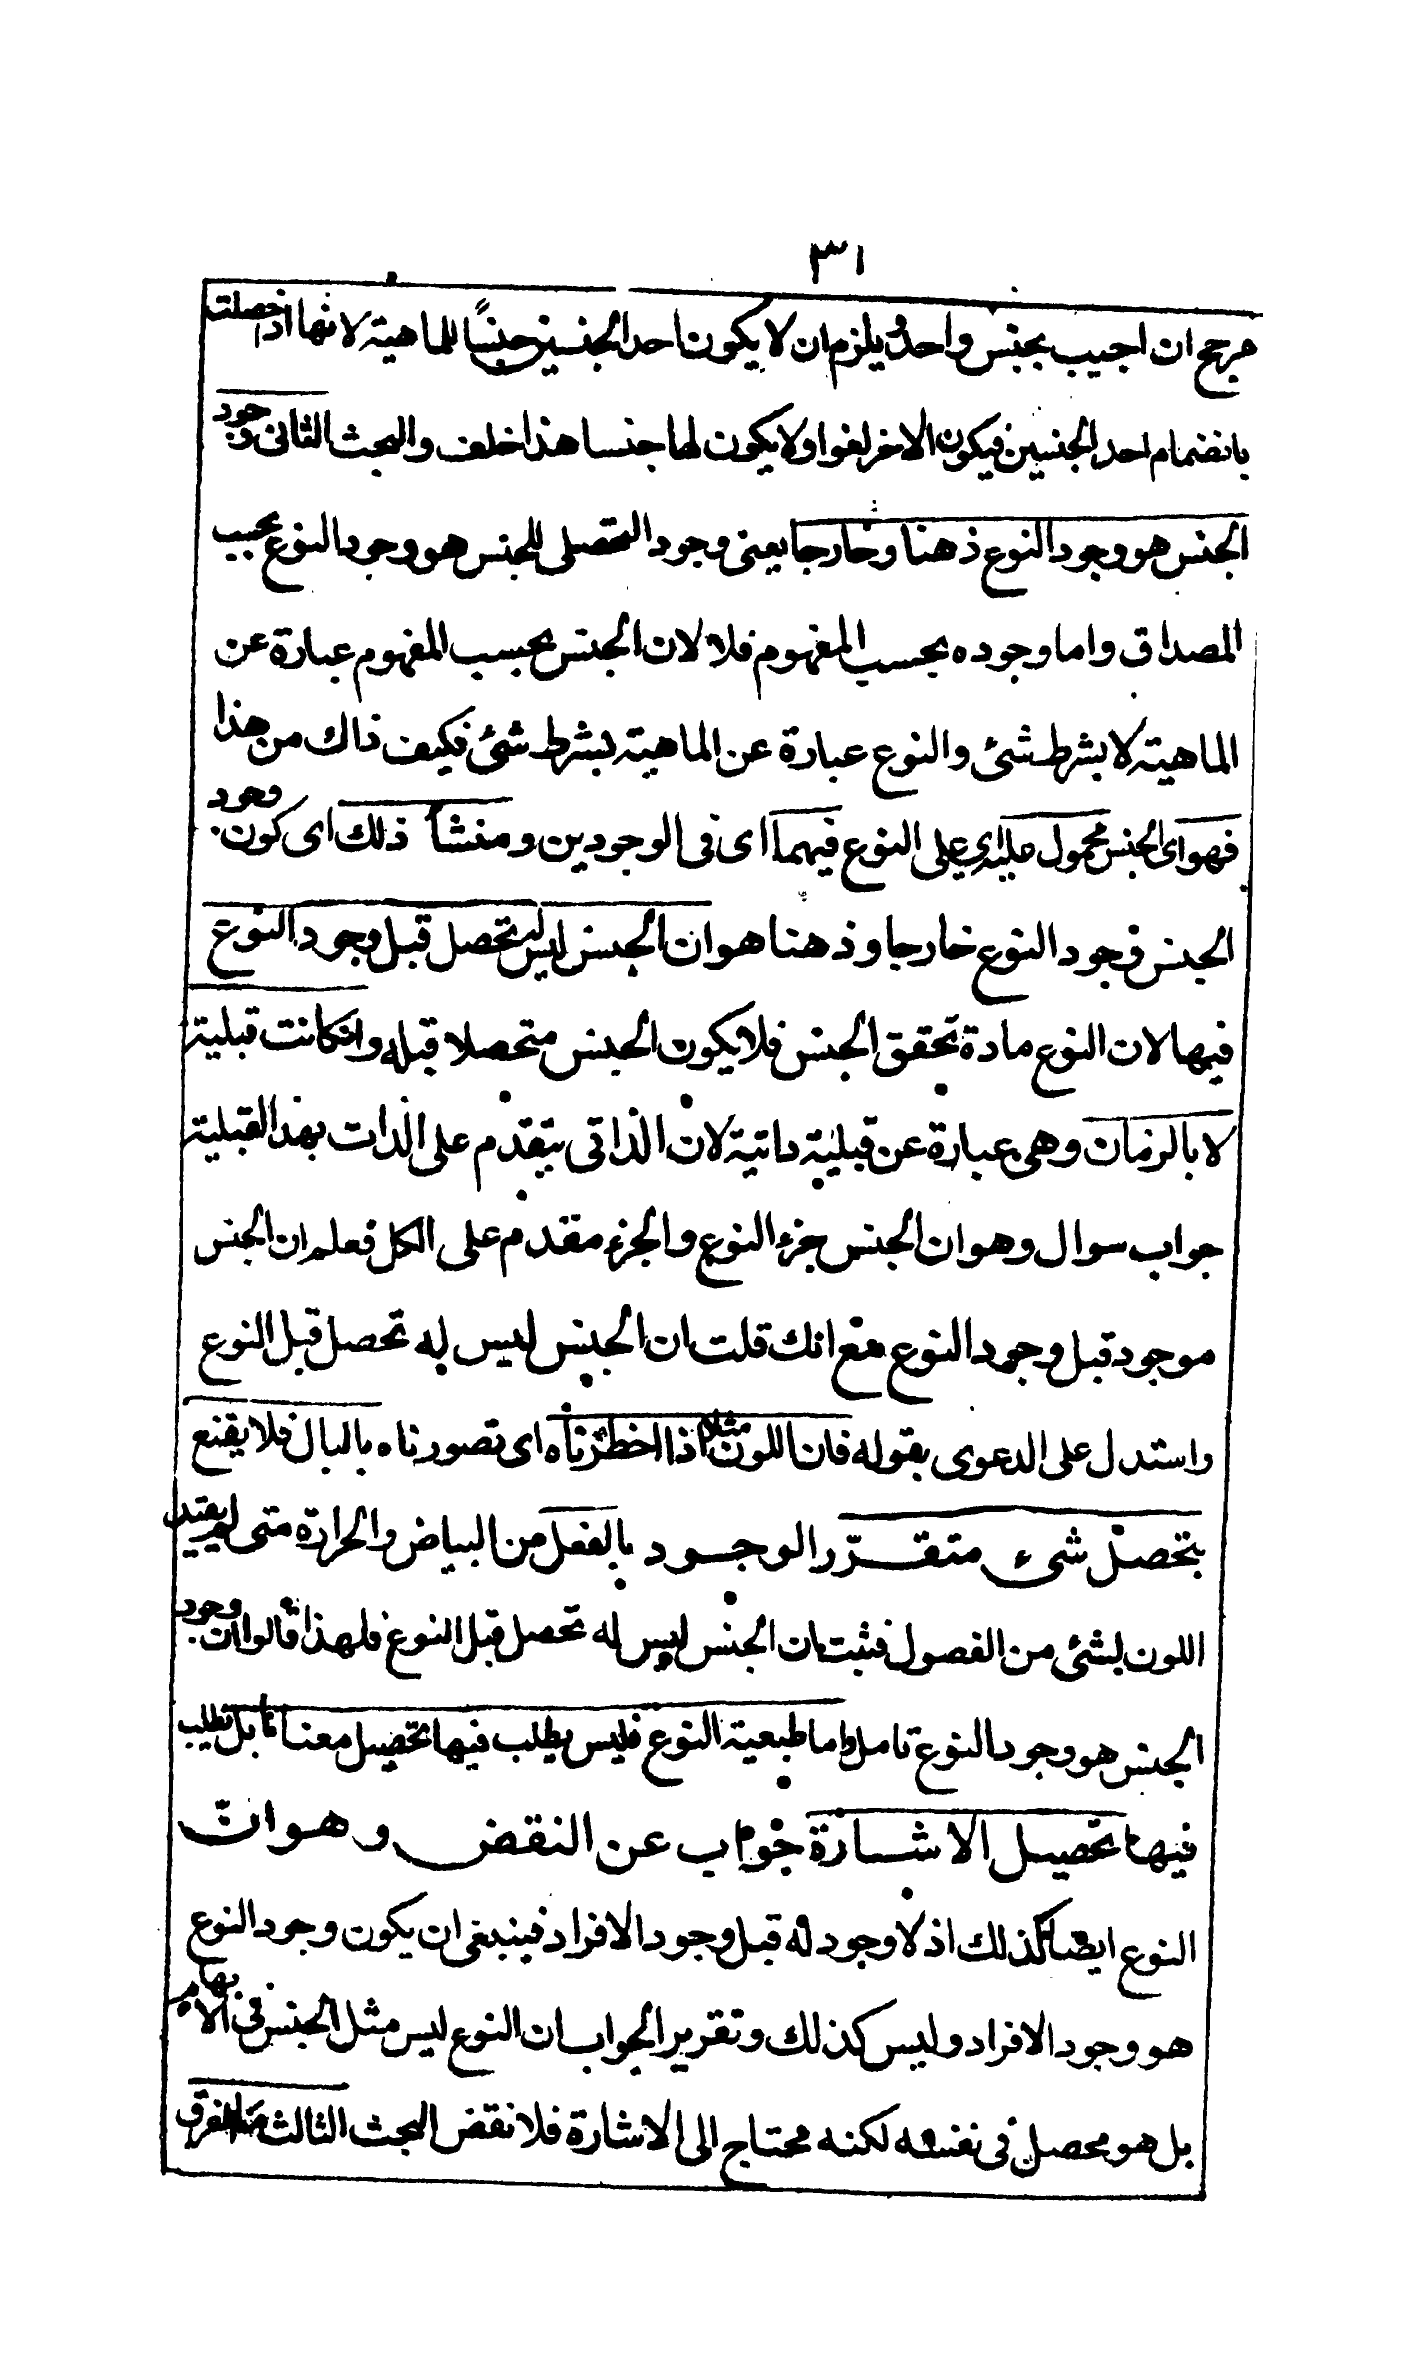 ٣١
مرجح ان اجيب بجنس واحد ويلزم ان لا يكون احد الجنسين جنسًا للماهية لانها اذا حصلت
بانضمام احد الجنسين فيكون الاخر لغوا ولا يكون لها جنسا هذا خلف والبحث الثانى وجود
الجنس هو وجود النوع ذهنا وخارجا يعنى وجود التحصلى للجنس هو وجود النوع بحسب
المصداق واما وجوده بحسب المفهوم فلا لان الجنس بحسب المفهوم عبارة عن
الماهية لا بشرط شئ والنوع عبارة عن الماهية بشرط شئ فكيف ذاك من هذا
فهو اى الجنس محمول عليه اى على النوع فيهما اى فى الوجودين ومنشأ ذلك اى كون وجود
الجنس وجود النوع خارجا وذهنا هو ان الجنس ليس له تحصل قبل وجود النوع
فيها لان النوع مادة تحقق الجنس فلا يكون الجنس متحصلا قبله وانكانت قبلية
لا بالزمان وهى عبارة عن قبلية ذاتية لان الذاتى يتقدم على الذات بهذا القبلية
جواب سوال وهو ان الجنس جزء النوع والجزء مقدم على الكل فعلم ان الجنس
موجود قبل وجود النوع مع انك قلت ان الجنس ليس له تحصل قبل النوع
واستدل على الدعوى بقوله فان اللون مثلا اذا اخطرناه اى تصورناه بالبال فلا يقنع
بتحصل شىء متقرّر الوجود بالفعل من البياض والحرارة متى لم يقيد
اللون بشئ من الفصول فثبت ان الجنس ليس له تحصل قبل النوع فلهذا قالوا ان وجود
الجنس هو وجود النوع تامل واما طبعية النوع فليس يطلب فيها تحصيل معناها بل تطلب
فيها تحصيل الاشارة جواب عن النقض وهو انّ
النوع ايضا كذلك اذ لا وجود له قبل وجود الافراد فينبغى ان يكون وجود النوع
هو وجود الافراد وليس كذلك وتقرير الجواب ان النوع ليس مثل الجنس فى الابهام
بل هو محصل فى نفسه لكنه محتاج الى الاشارة فلا نقض البحث الثالث ما الفرق